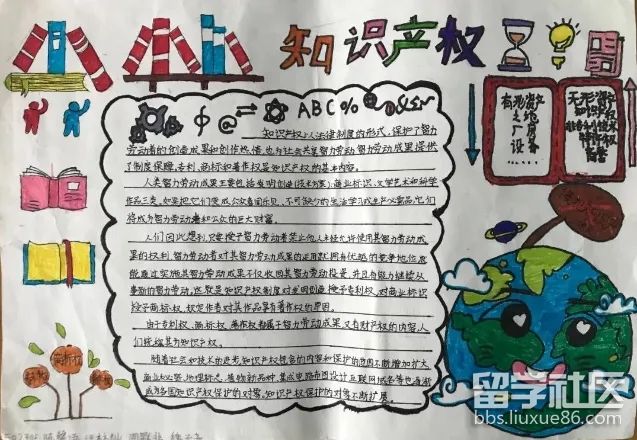 知识产权
ABC%
@
&
知识产权以法律制度的形式，保护了智力
劳动者的创造成果和创作热情，也为社会共享智力劳动智力劳动成果提供
了制度保障。专利、商标和著作权是知识产权的基本内容。
人类智力劳动成果主要包括发明创造(技术方案)、商业标识、文学艺术和科学
作品三类。
将成为智力劳动者和公众的巨大财富。
人们因此想到，只要授予智力劳动者禁止他人未经允许使用其智力劳动成
果的权利，智力劳动者对其智力劳动成果的运用就拥有优越的竞争地位，
能通过实施其智力劳动成果不仅收回其智力劳动投资，并且有能力继续从
事新的智力劳动。这就是知识产权制度对发明创造授予专利权、对商业标识
授予商标权、规定作者对其作品享有著作权的原因。
由于专利权、商标权、著作权都属于智力劳动成果，又有财产权的内容，人
们统称其为知识产权。
随着社会和技术的进步，知识产权包含的内容和保护的范围不断增加扩大，
商业秘密、地理标志、植物新品种、集成电路布图设计、互联网域名等也逐渐
成为各国知识产权保护的对象，知识产权保护的对象不断扩展。
有形资产
之
厂房
设备
无形资产
知识产权
商标权
留学社区
bbs.liuxue86.com